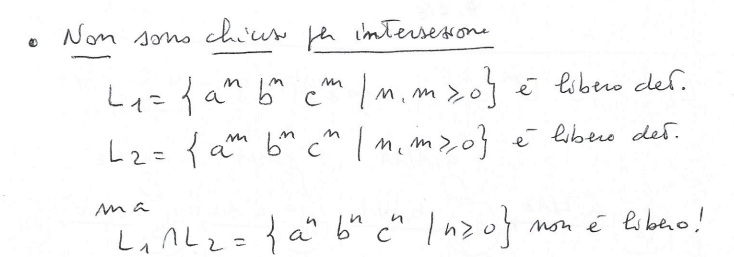 • Non sono chiusi per intersezione
L1 = { aⁿ bⁿ cᵐ | n, m ≥ 0 } è libero det.
L2 = { aᵐ bⁿ cⁿ | n, m ≥ 0 } è libero det.
ma
L1 ∩ L2 = { aⁿ bⁿ cⁿ | n ≥ 0 } non è libero!